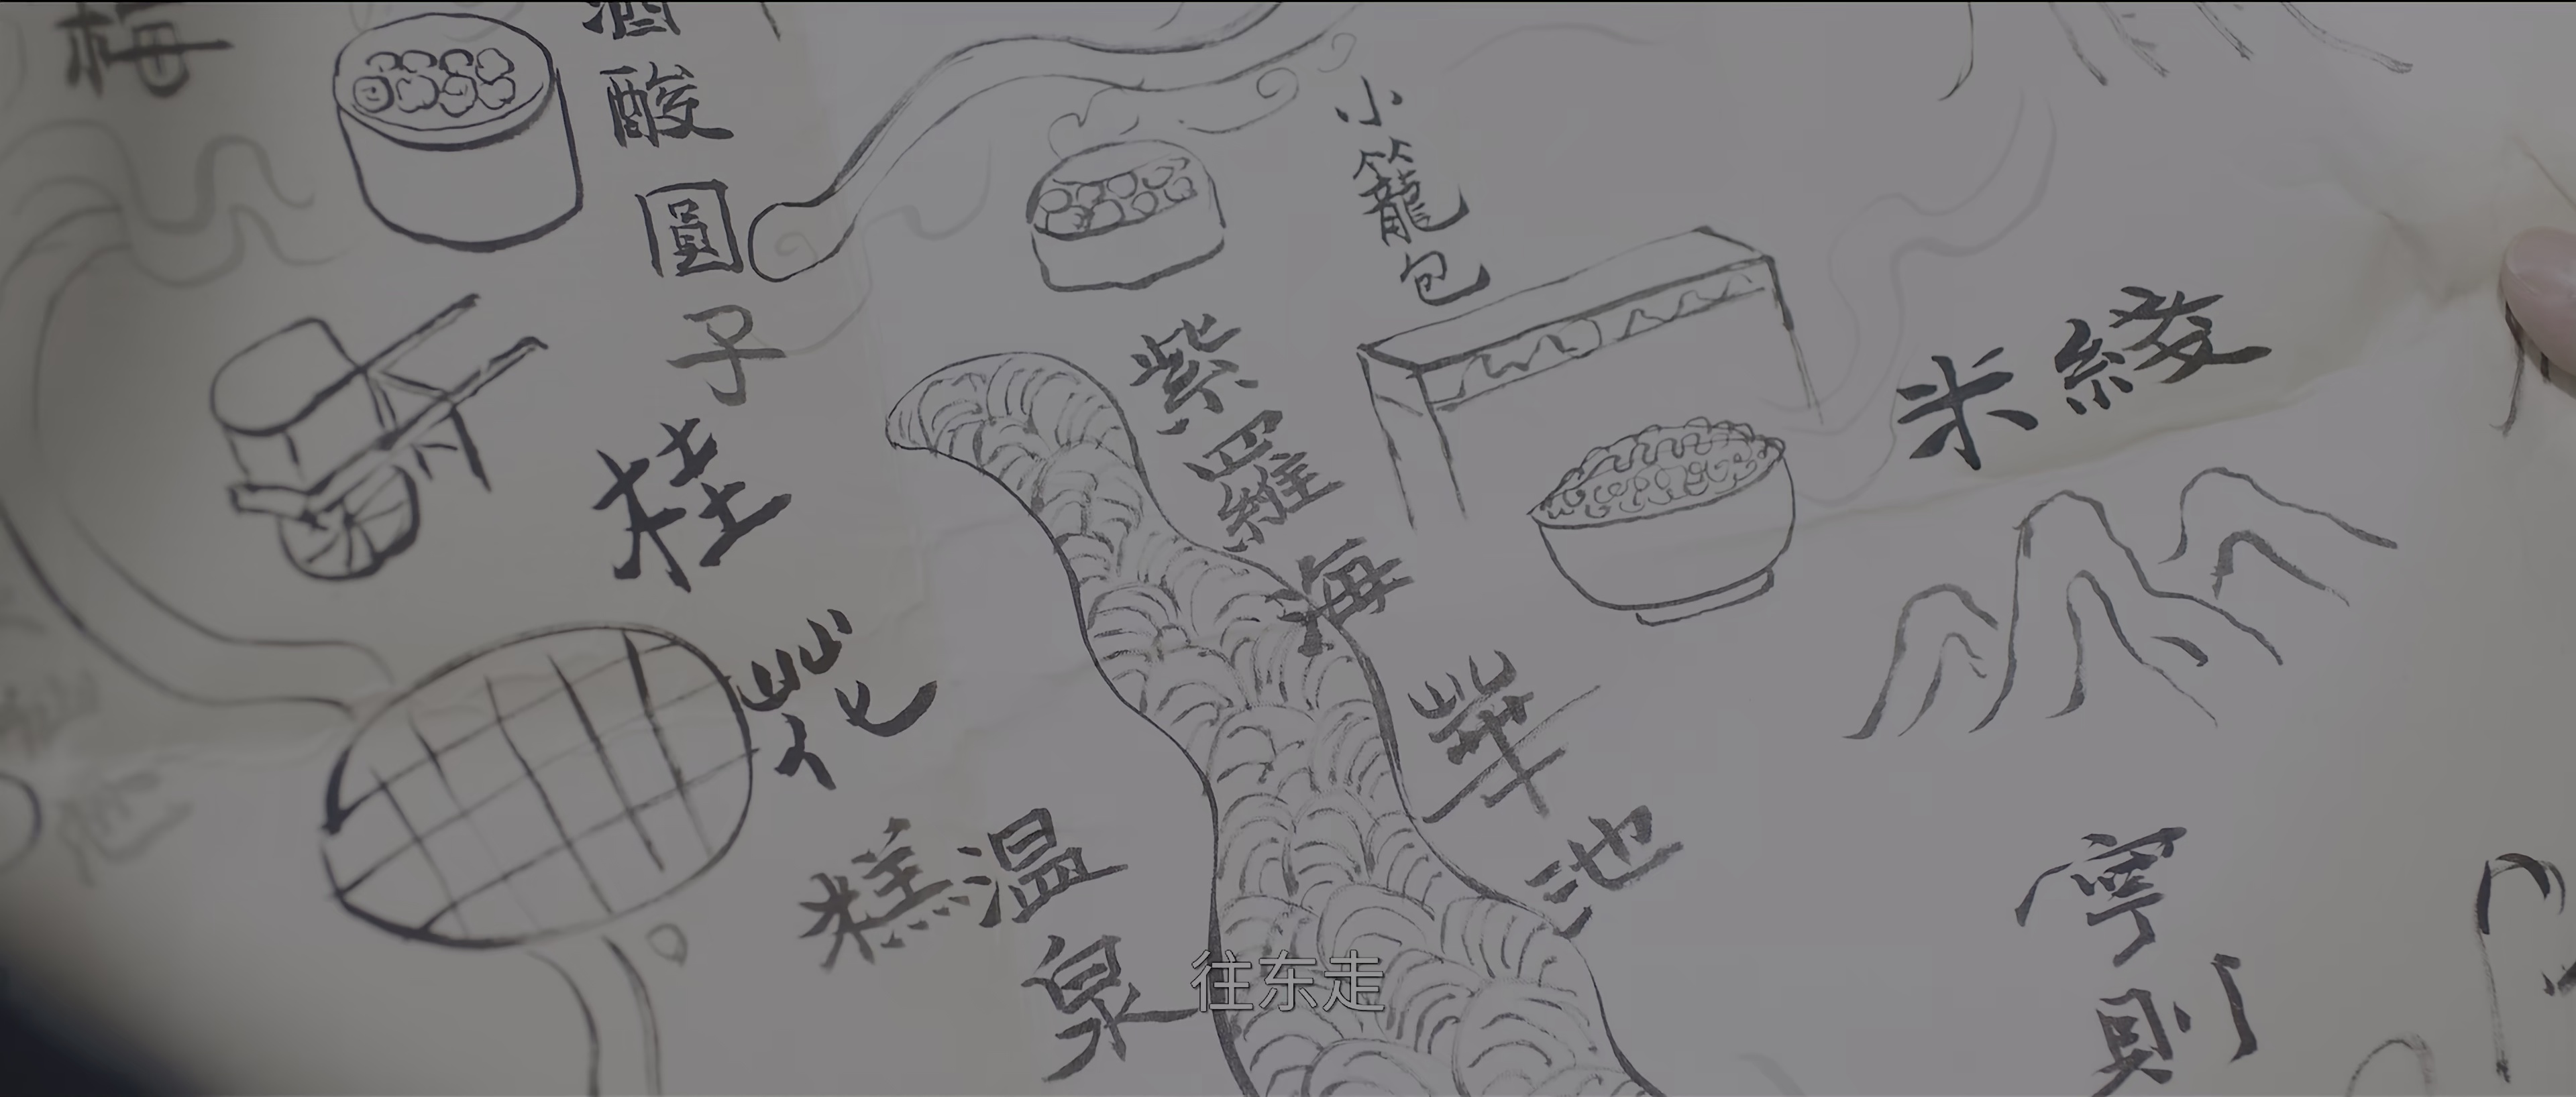 梅
酒酸圓子
小籠包
米綫
桂花糕
紫羅
海華池
温泉
寧則
往东走